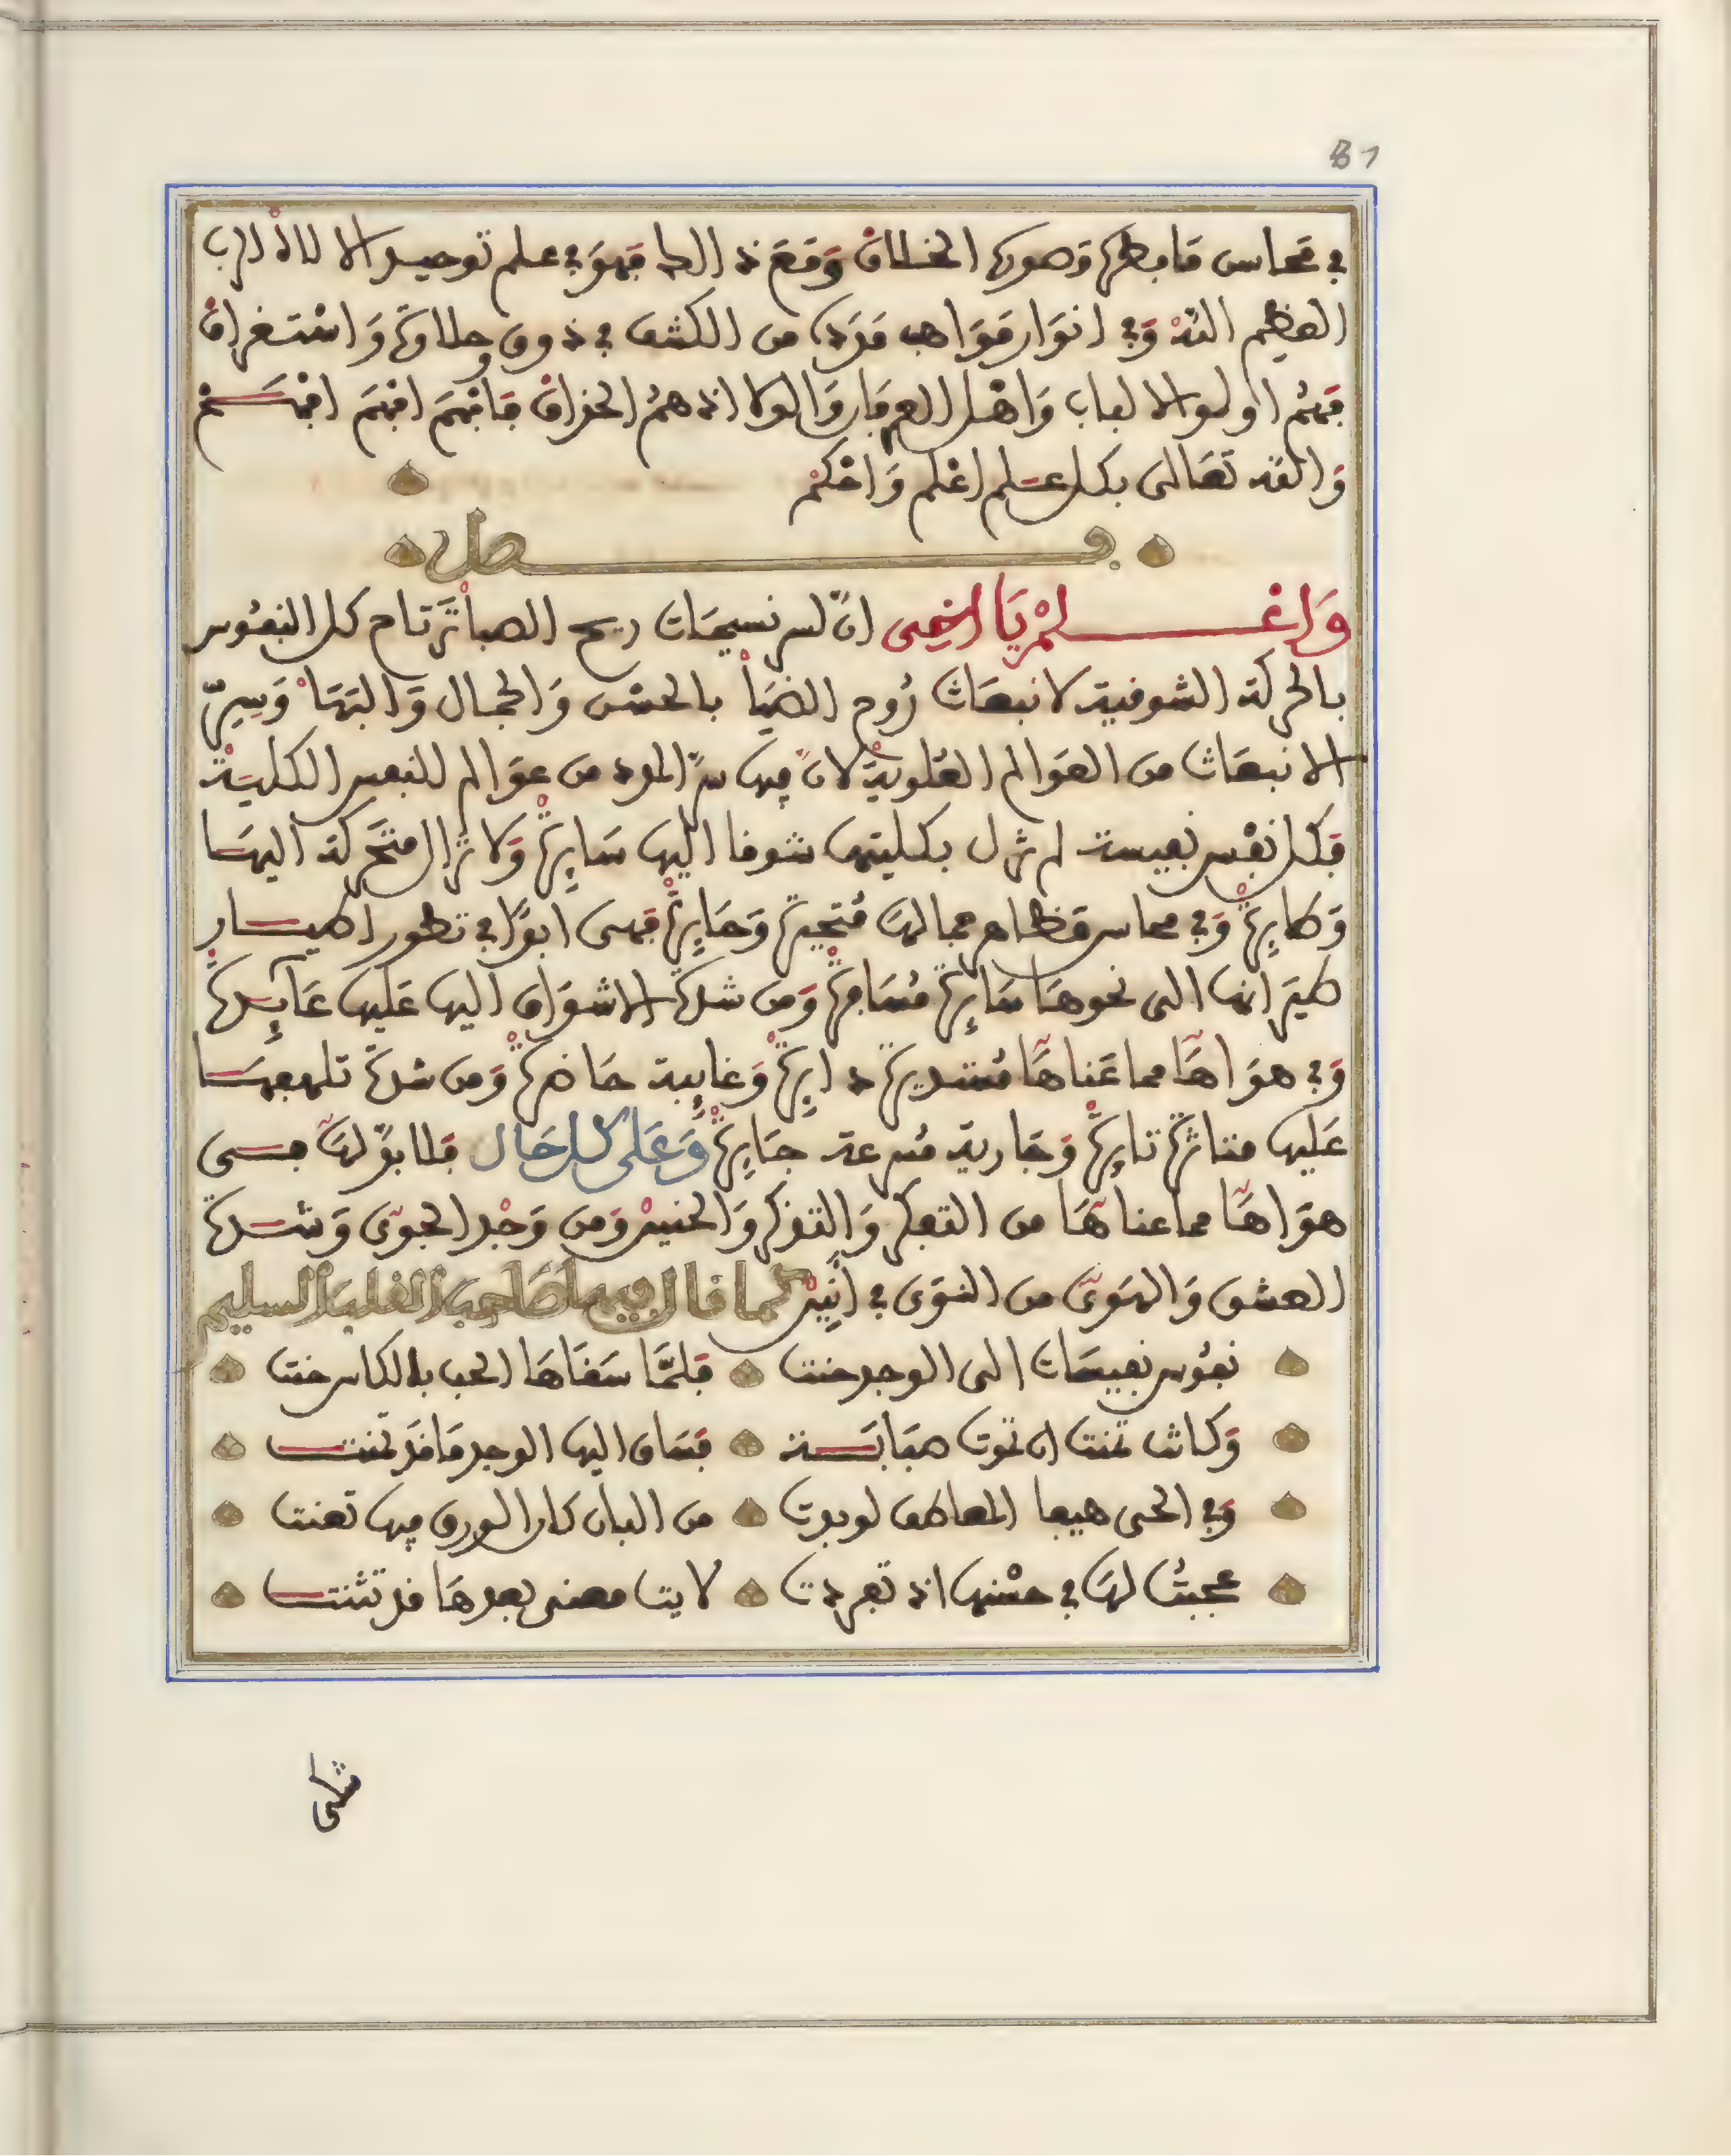 81
في محاسن ما بطن وصورة الخلاق ومع ذالك فهو في علم توحيد الالاه الرب
العظيم الله وفي انوار مواهب مدده من الكشف في ذوق وحلاوة واستغراق
فهم اولو الالباب واهل العرفان والولا اذ هم الحذاق فافهم افهم افهم
والله تعالى بكل علم اعلم واحكم
فصل
واعلم يا اخي ان لسر نسيمات ريح الصبا ترتاح كل النفوس
بالحركة الشوقية لانبعاث روح الضيا بالحسن والجمال والبها وسر
الانبعاث من العوالم العلوية لان فيها سر المدد من عوالم النفس الكلية
فكل نفس نفيسة لم تزل بكليتها شوقا اليها سايرة ولا تزال متحركة اليها
وطايرة وفي محاسن مظاهر جمالها متحيرة وحايرة فهي ابدا في تطور اطيار
طيرانها الى نحوها سايرة مسافرة ومن شدة الاشواق اليها عليها عايدة
وفي هواها مما عناها مستديرة دايرة وغايبة حاضرة ومن شدة تلهفها
عليها متاثرة ثايرة وجارية مسرعة جايرة وعلى كل حال فلا بد لها في
هواها مما عناها من التفكر والتذكر والحنين ومن وجد الجوى وشدة
العشق والهوى من النوى في انين كما قال فيها صاحب القلب السليم
نفوس نفيسات الى الوجد حنت فلما سقاها الحب بالكاس جنت
وكانت تمنت ان تموت صبابة فساق اليها الوجد ما قد تمنت
وفي الحي هيفا المعاطف لو بدت من البان كان الورق فيها تغنت
عجبت لها في حسنها اذ تفردت لاية معنى بعدها قد تثنت